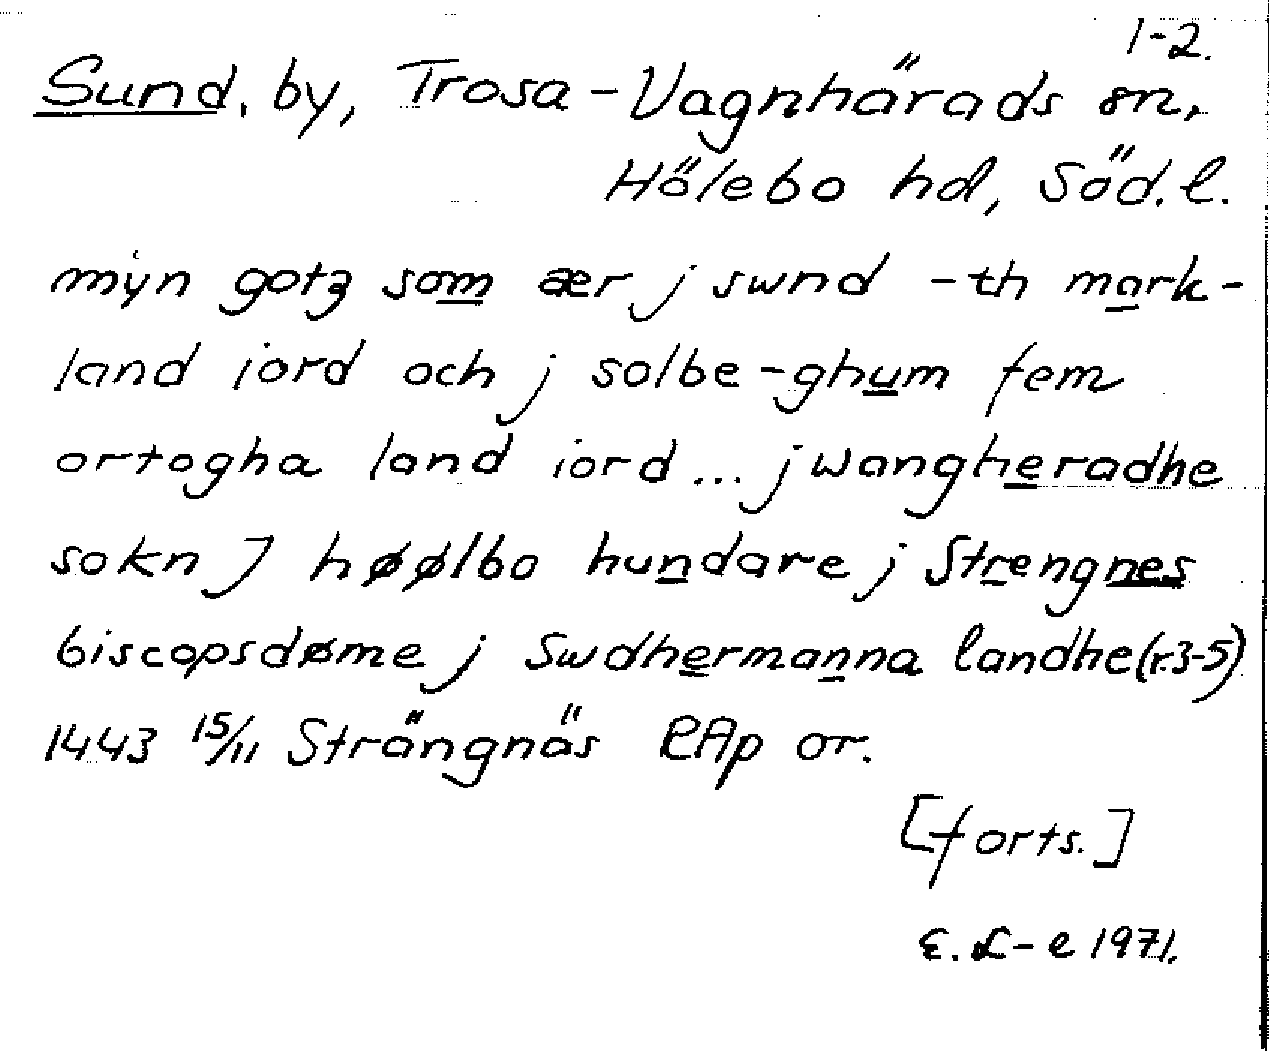 1-2.
Sund, by, Trosa-Vagnhärads sn,
Hölebo hd, Söd.l.
mÿn gotz som ær j swnd -th mark-
land iord och j solbe-ghum fem
ortogha land iord ... j wangheradhe
sokn J høølbo hundare j Strengnes
biscopsdøme j Swdhermanna landhe (r.3-5)
1443 15/11 Strängnäs RAp or.
[forts.]
E. L-e 1971.